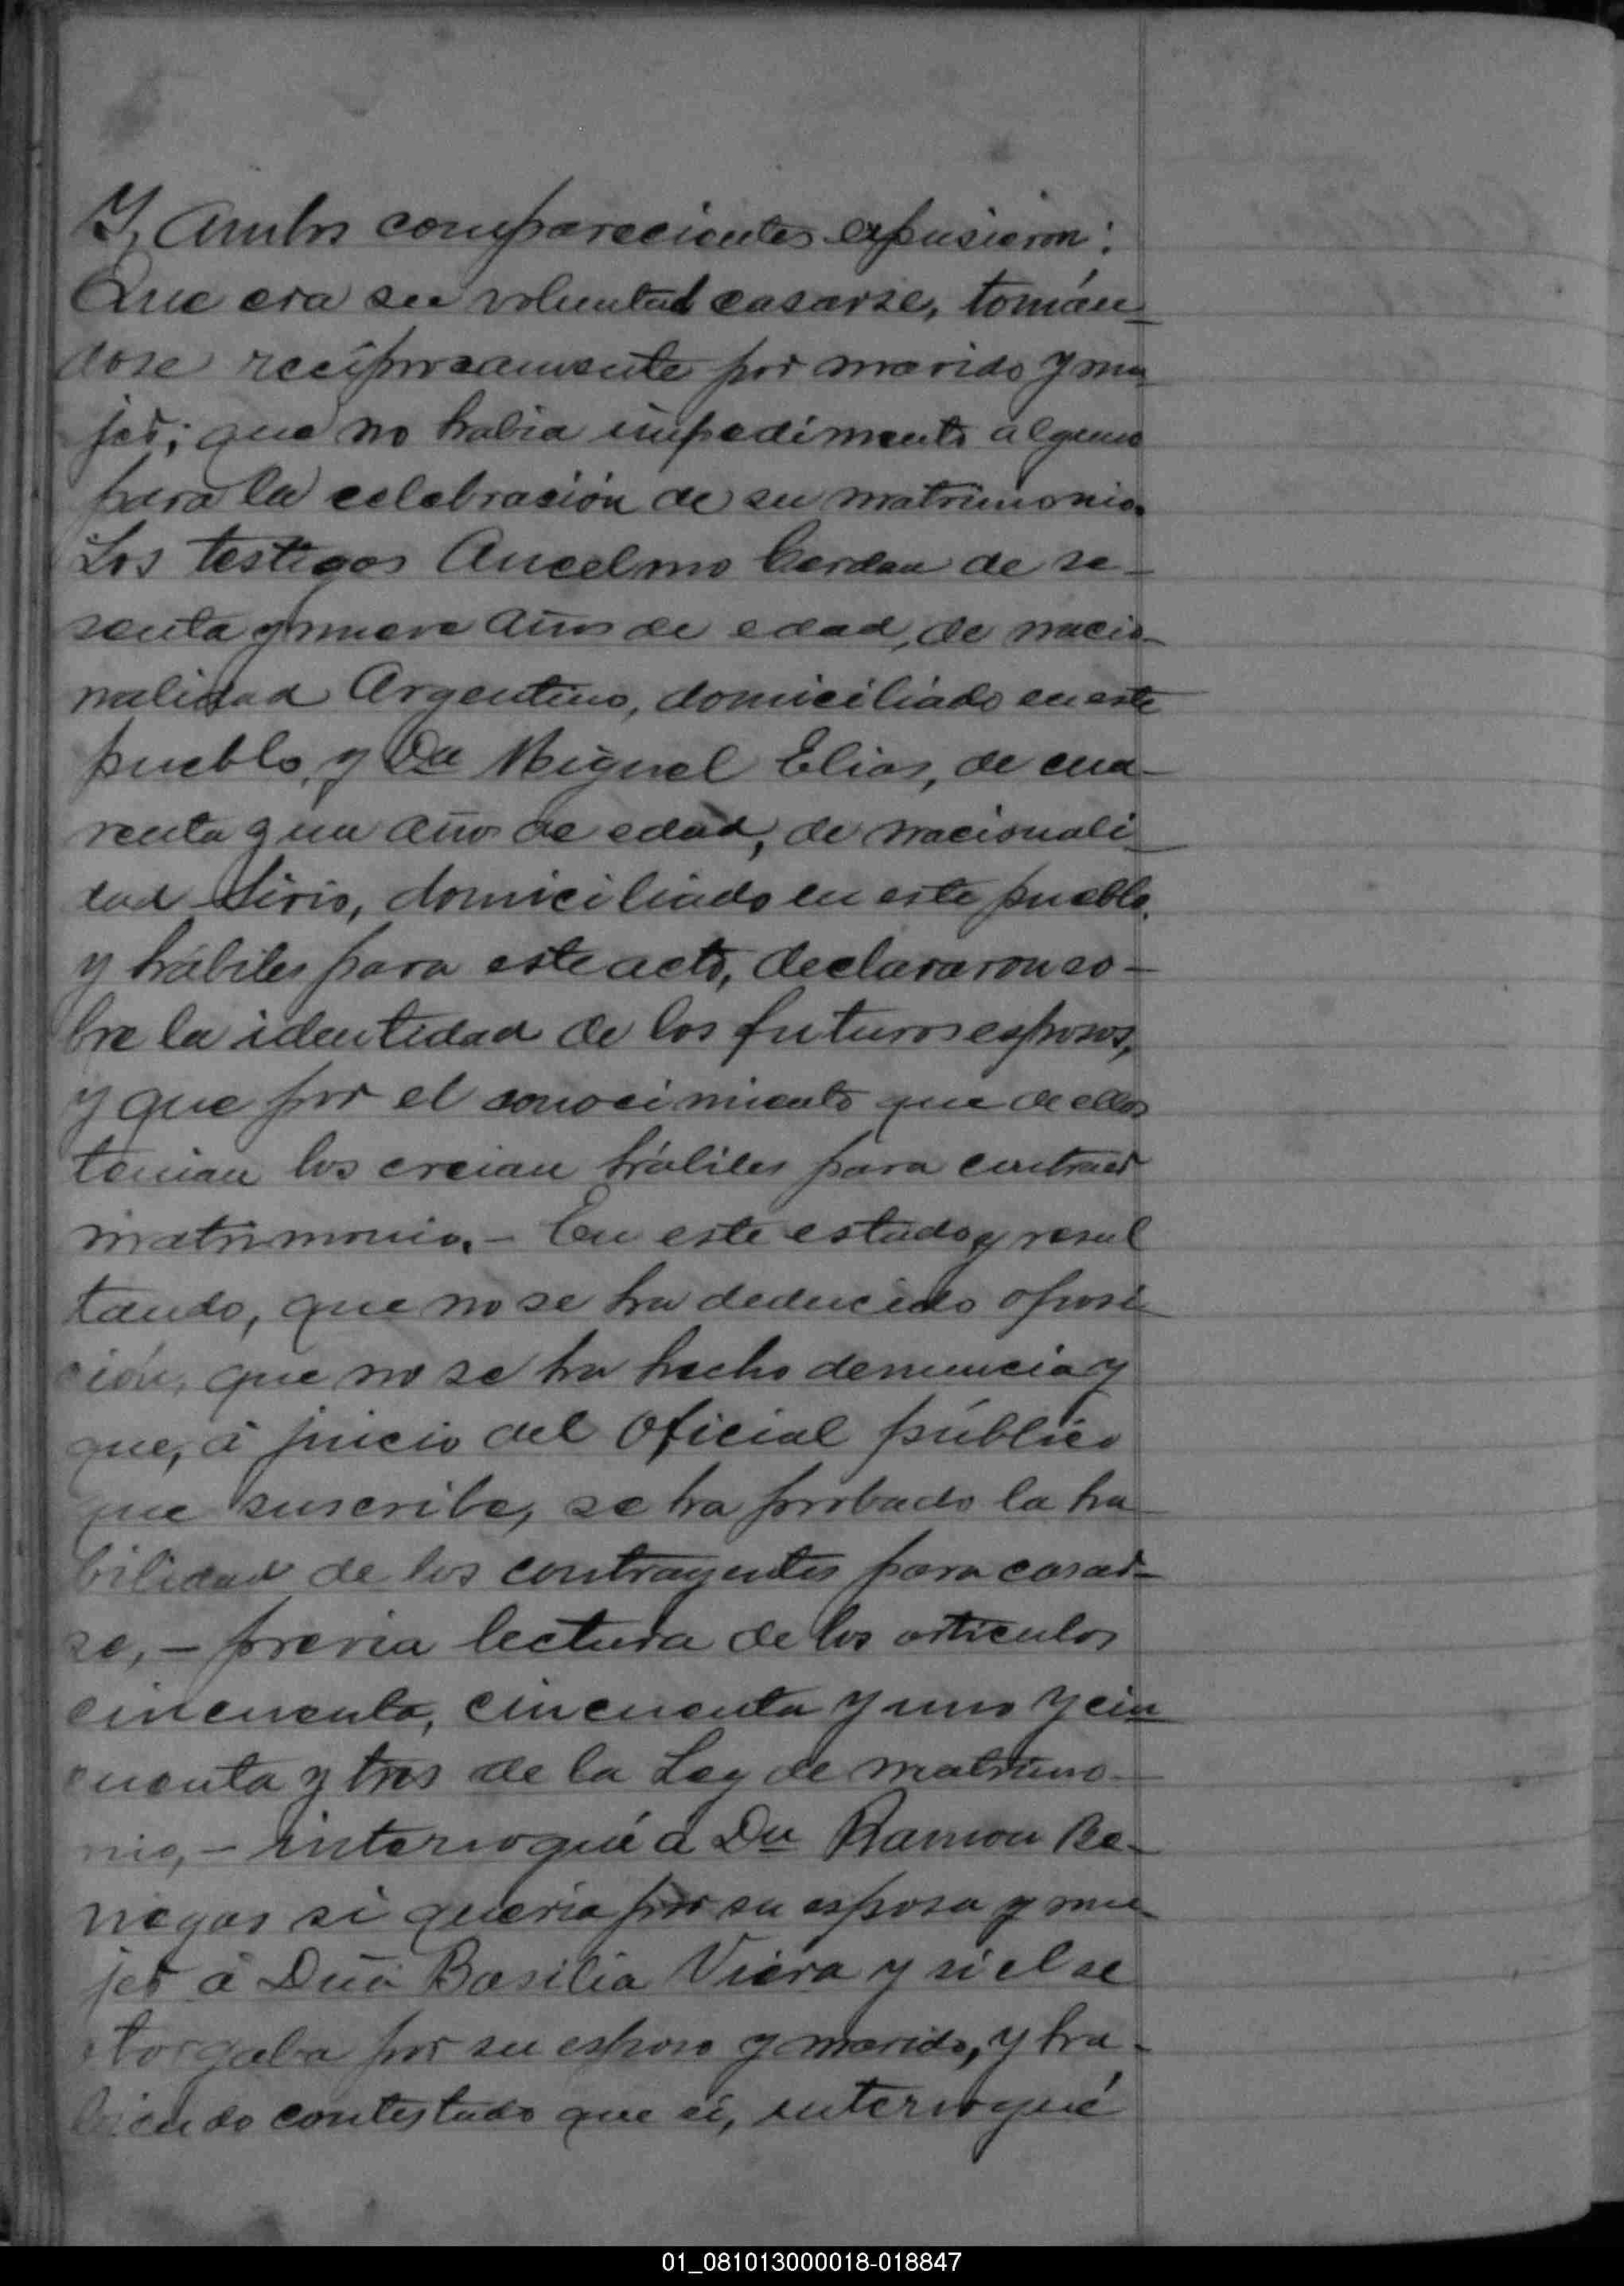 Y, Ambos comparecientes expusieron:
Que era su voluntad casarse, tomán-
dose recíprocamente por marido y mu-
jer; que no habia impedimento alguno
para la celebración de su matrimonio.
Los testigos Ancelmo Cerdan de se-
senta y nueve años de edad, de nacio-
nalidad Argentino, domiciliado en este
pueblo, y Dn Miguel Elias, de cua-
renta y un años de edad, de nacionali-
dad Sirio, domiciliado en este pueblo,
y hábiles para este acto, declararon so-
bre la identidad de los futuros esposos,
y que por el conocimiento que de ellos
tenian los creian hábiles para contraer
matrimonio.- En este estado y resul
tando, que no se ha deducido oposi-
ción, que no se ha hecho denuncia y
que, á juicio del Oficial público
que suscribe, se ha probado la ha-
bilidad de los contrayentes para casar-
se,- previa lectura de los articulos
cincuenta, cincuenta y uno y cin-
cuenta y tres de la Ley de matrimo-
nio,- interrogué á Dn Ramon Be-
negas si queria por su esposa y mu-
jer á Dña Basilia Viera y si el se
otorgaba por su esposo y marido, y ha-
biendo contestado que sí, interrogué
01_081013000018-018847